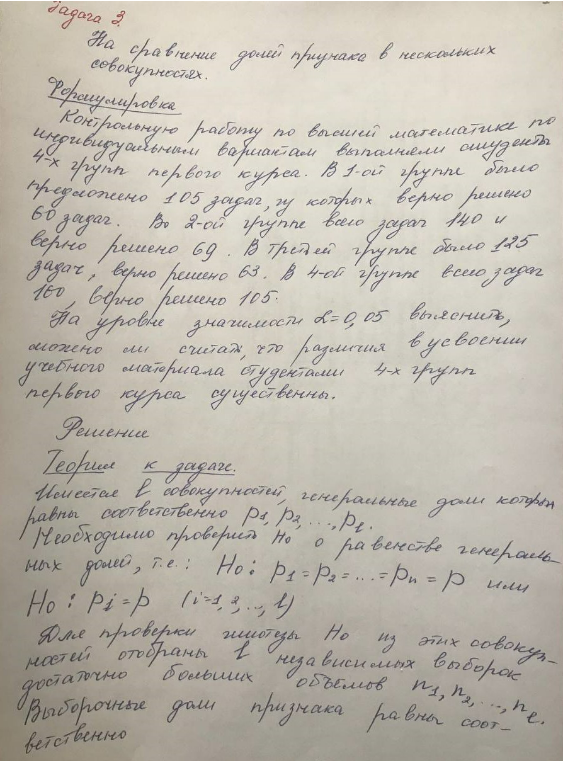 Задача 3.
На сравнение долей признака в нескольких
совокупностях.
Формулировка
Контрольную работу по высшей математике по
индивидуальным вариантам выполняли студенты
4-х групп первого курса. В 1-ой группе было
предложено 105 задач, из которых верно решено
60 задач. Во 2-ой группе всего задач 140 и
верно решено 69. В третей группе было 125
задач, верно решено 63. В 4-ой группе всего задач
160, верно решено 105.
На уровне значимости α=0,05 выяснить,
можно ли считать, что различия в усвоении
учебного материала студентами 4-х групп
первого курса существенны.
Решение
Теория к задаче.
Имеется l совокупностей, генеральные доли которых
равны соответственно p1, p2, ..., pl.
Необходимо проверить Но о равенстве генераль-
ных долей, т.е.: Но: p1 = p2 = ... = pn = p или
Но: pi = p (i=1, 2, ..., l)
Для проверки гипотезы Но из этих совокуп-
ностей отобраны l независимых выборок
достаточно больших объёмов n1, n2, ..., nl.
Выборочные доли признака равны соот-
ветственно